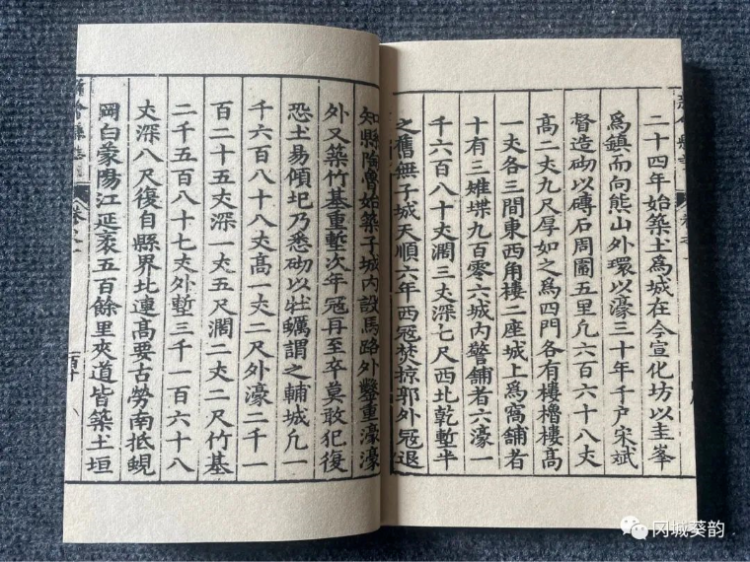 二十四年始築土爲城在今宣化坊以圭峯
爲鎮而向熊山外環以濠三十年千户宋斌
督造砌以磚石周圍五里凢六百六十八丈
高二丈九尺厚如之爲四門各有樓櫓樓高
一丈各三間東西角樓二座城上爲窩舖者
十有三雉堞九百零六城内警舖者六濠一
千六百八十丈濶三丈深七尺西北乾塹半
之舊無子城天順六年西冦焚掠郭外冦退
知縣陶魯始築子城内設馬路外鑿重濠濠
外又築竹基重塹次年冦再至卒莫敢犯復
恐土易傾圮乃悉砌以牡蠣謂之輔城凢一
千六百八十八丈高一丈二尺外濠二千一
百二十五丈深一丈五尺濶二丈二尺竹基
二千五百八十七丈外塹三千一百六十八
丈深八尺復自縣界北連髙要古勞南抵蜆
岡白蒙陽江延袤五百餘里夾道皆築土垣
新會縣志
冈城葵韵